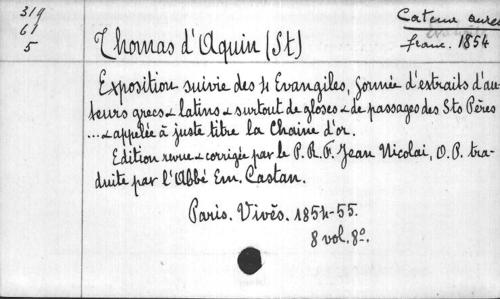 319
61
5
Catena aurea
franc. 1854
Thomas d'Aquin (St)
Exposition suivie des 4 Evangiles, formée d'extraits d'au-
teurs grecs & latins & surtout de gloses & de passages des Sts Pères
... & appelée à juste titre la Chaîne d'or.
Edition revue & corrigée par le P. R. F. Jean Nicolaï, O. P. tra-
duite par l'Abbé Em. Castan.
Paris. Vivès. 1854-55.
8 vol. 8º.